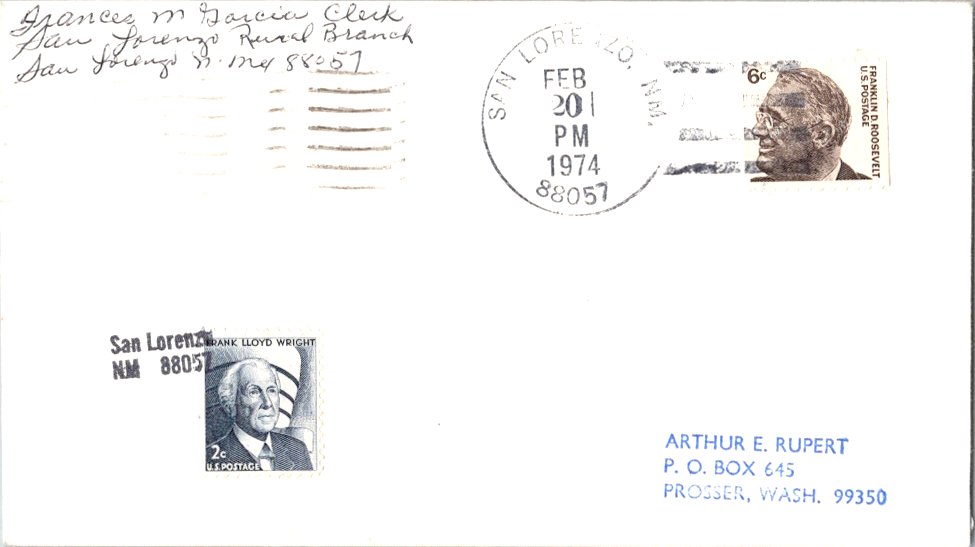 Frances M Garcia Clerk
San Lorenzo Rural Branch
San Lorenzo N. Mex 88057
SAN LORENZO, NM.
FEB
20
PM
1974
88057
6c
FRANKLIN D. ROOSEVELT
U.S. POSTAGE
San Lorenzo
NM 88057
FRANK LLOYD WRIGHT
2c
U.S. POSTAGE
ARTHUR E. RUPERT
P. O. BOX 645
PROSSER, WASH. 99350